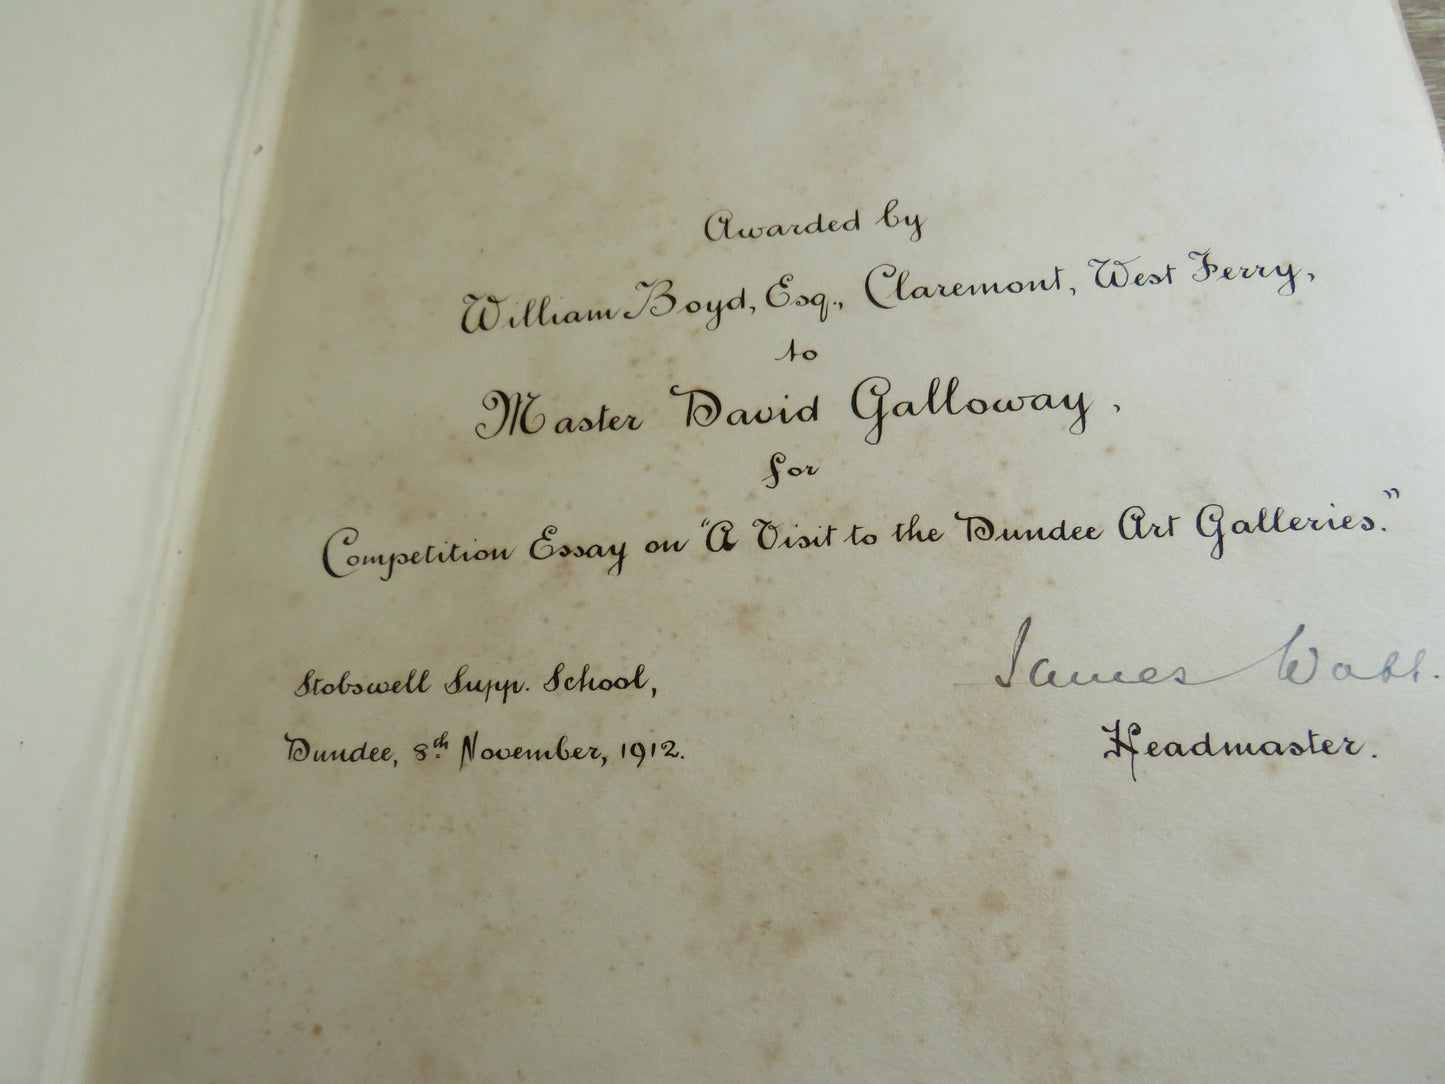 Awarded by
William Boyd, Esq., Claremont, West Ferry,
to
Master David Galloway,
for
Competition Essay on "A Visit to the Dundee Art Galleries."
James
Stobswell Supp. School,
Headmaster.
Dundee, 8th November, 1912.